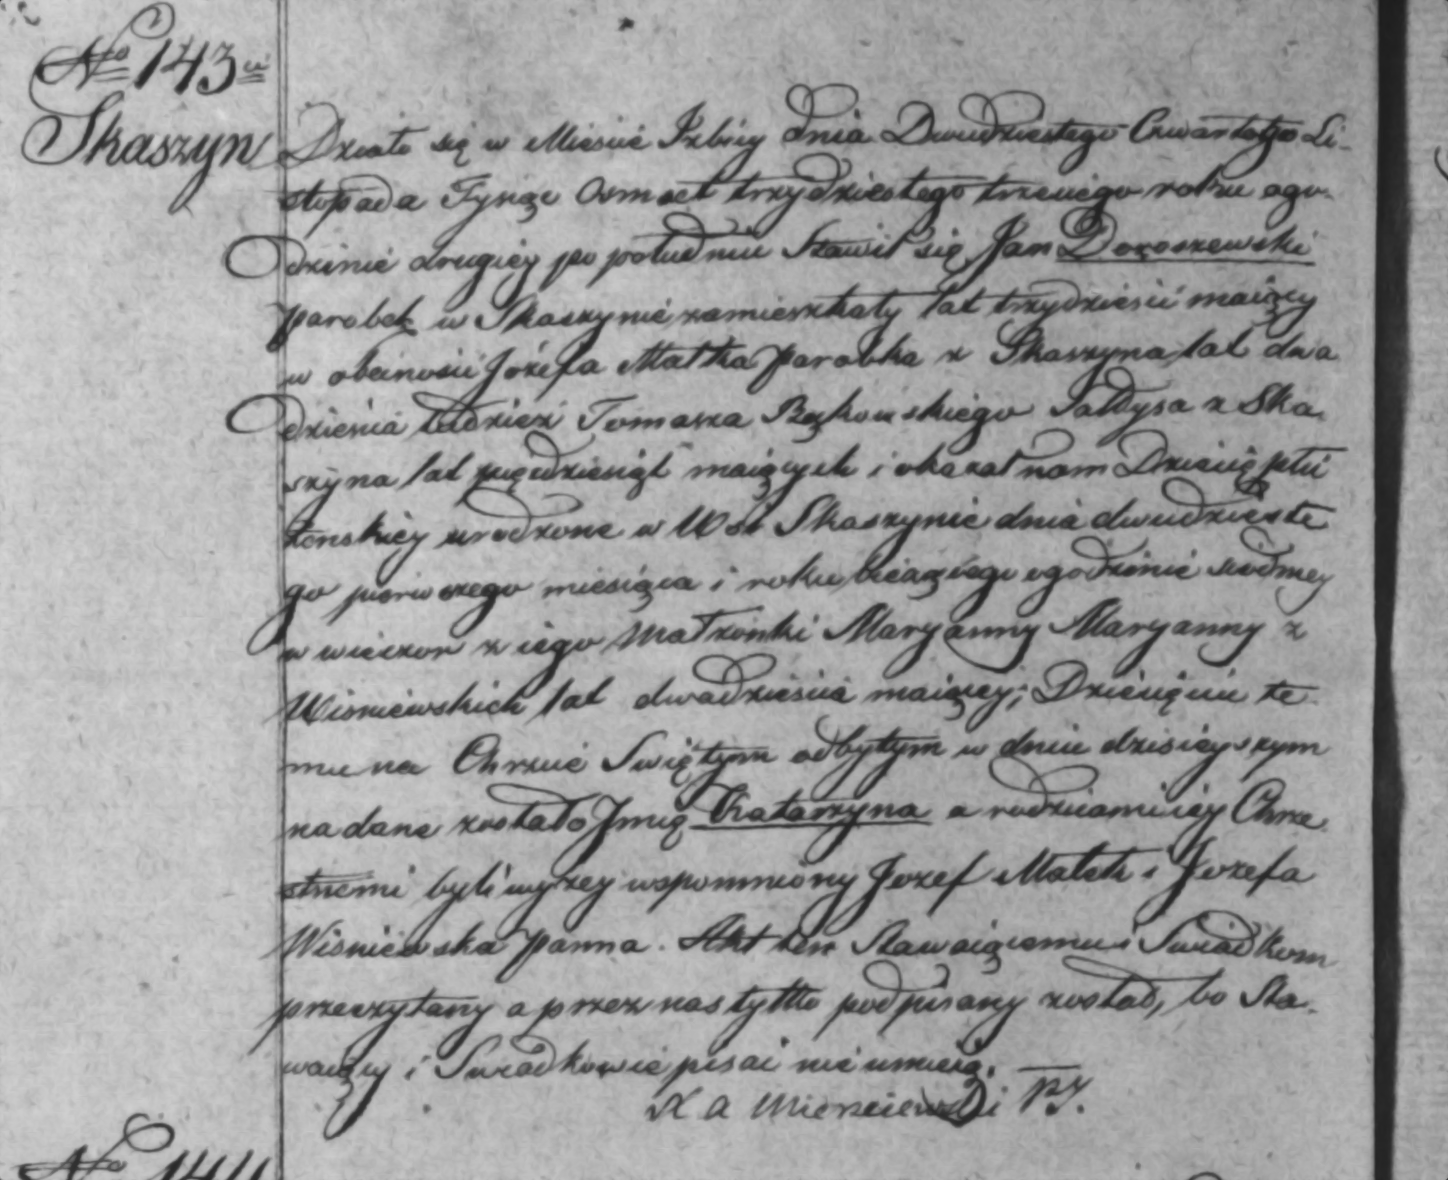 No 143.
Skaszyn
Działo się w Mieście Izbicy dnia Dwudziestego Czwartego Li-
stopada Tysiąc Osmset trzydziestego trzeciego roku ogo-
dzinie drugiey po południu Stawił się Jan Doroszewski
parobek w Skaszynie zamieszkały lat trzydzieści maiący
w obecności Józefa Matka parobka z Skaszyna lat dwa
dzieścia tudzież Tomasza Bąkowskiego Sołtysa z Ska-
szyna lat pięćdziesiąt maiących i okazał nam Dziecię płci
żenskiey urodzone w Wsi Skaszynie dnia dwudzieste
go pierwszego miesiąca i roku bieżącego ogodzinie siódmey
w wieczor z iego Małżonki Maryanny Maryanny z
Wisniewskich lat dwadzieścia maiącey; Dziecięciu te
mu na Chrzcie Swiętym odbytym w dniu dzisieyszym
nadane zostało Imię Katarzyna a rodzicami iey Chrze
stnemi byli wyżey wspomniony Jozef Matek i Jozefa
Wisniewska panna. Akt ten Stawaiącemu i Swiadkom
przeczytany a przez nas tylko podpisany został, bo Sta-
waiący i Swiadkowie pisać nie umieią.
X A Mierzeiewski
No 144